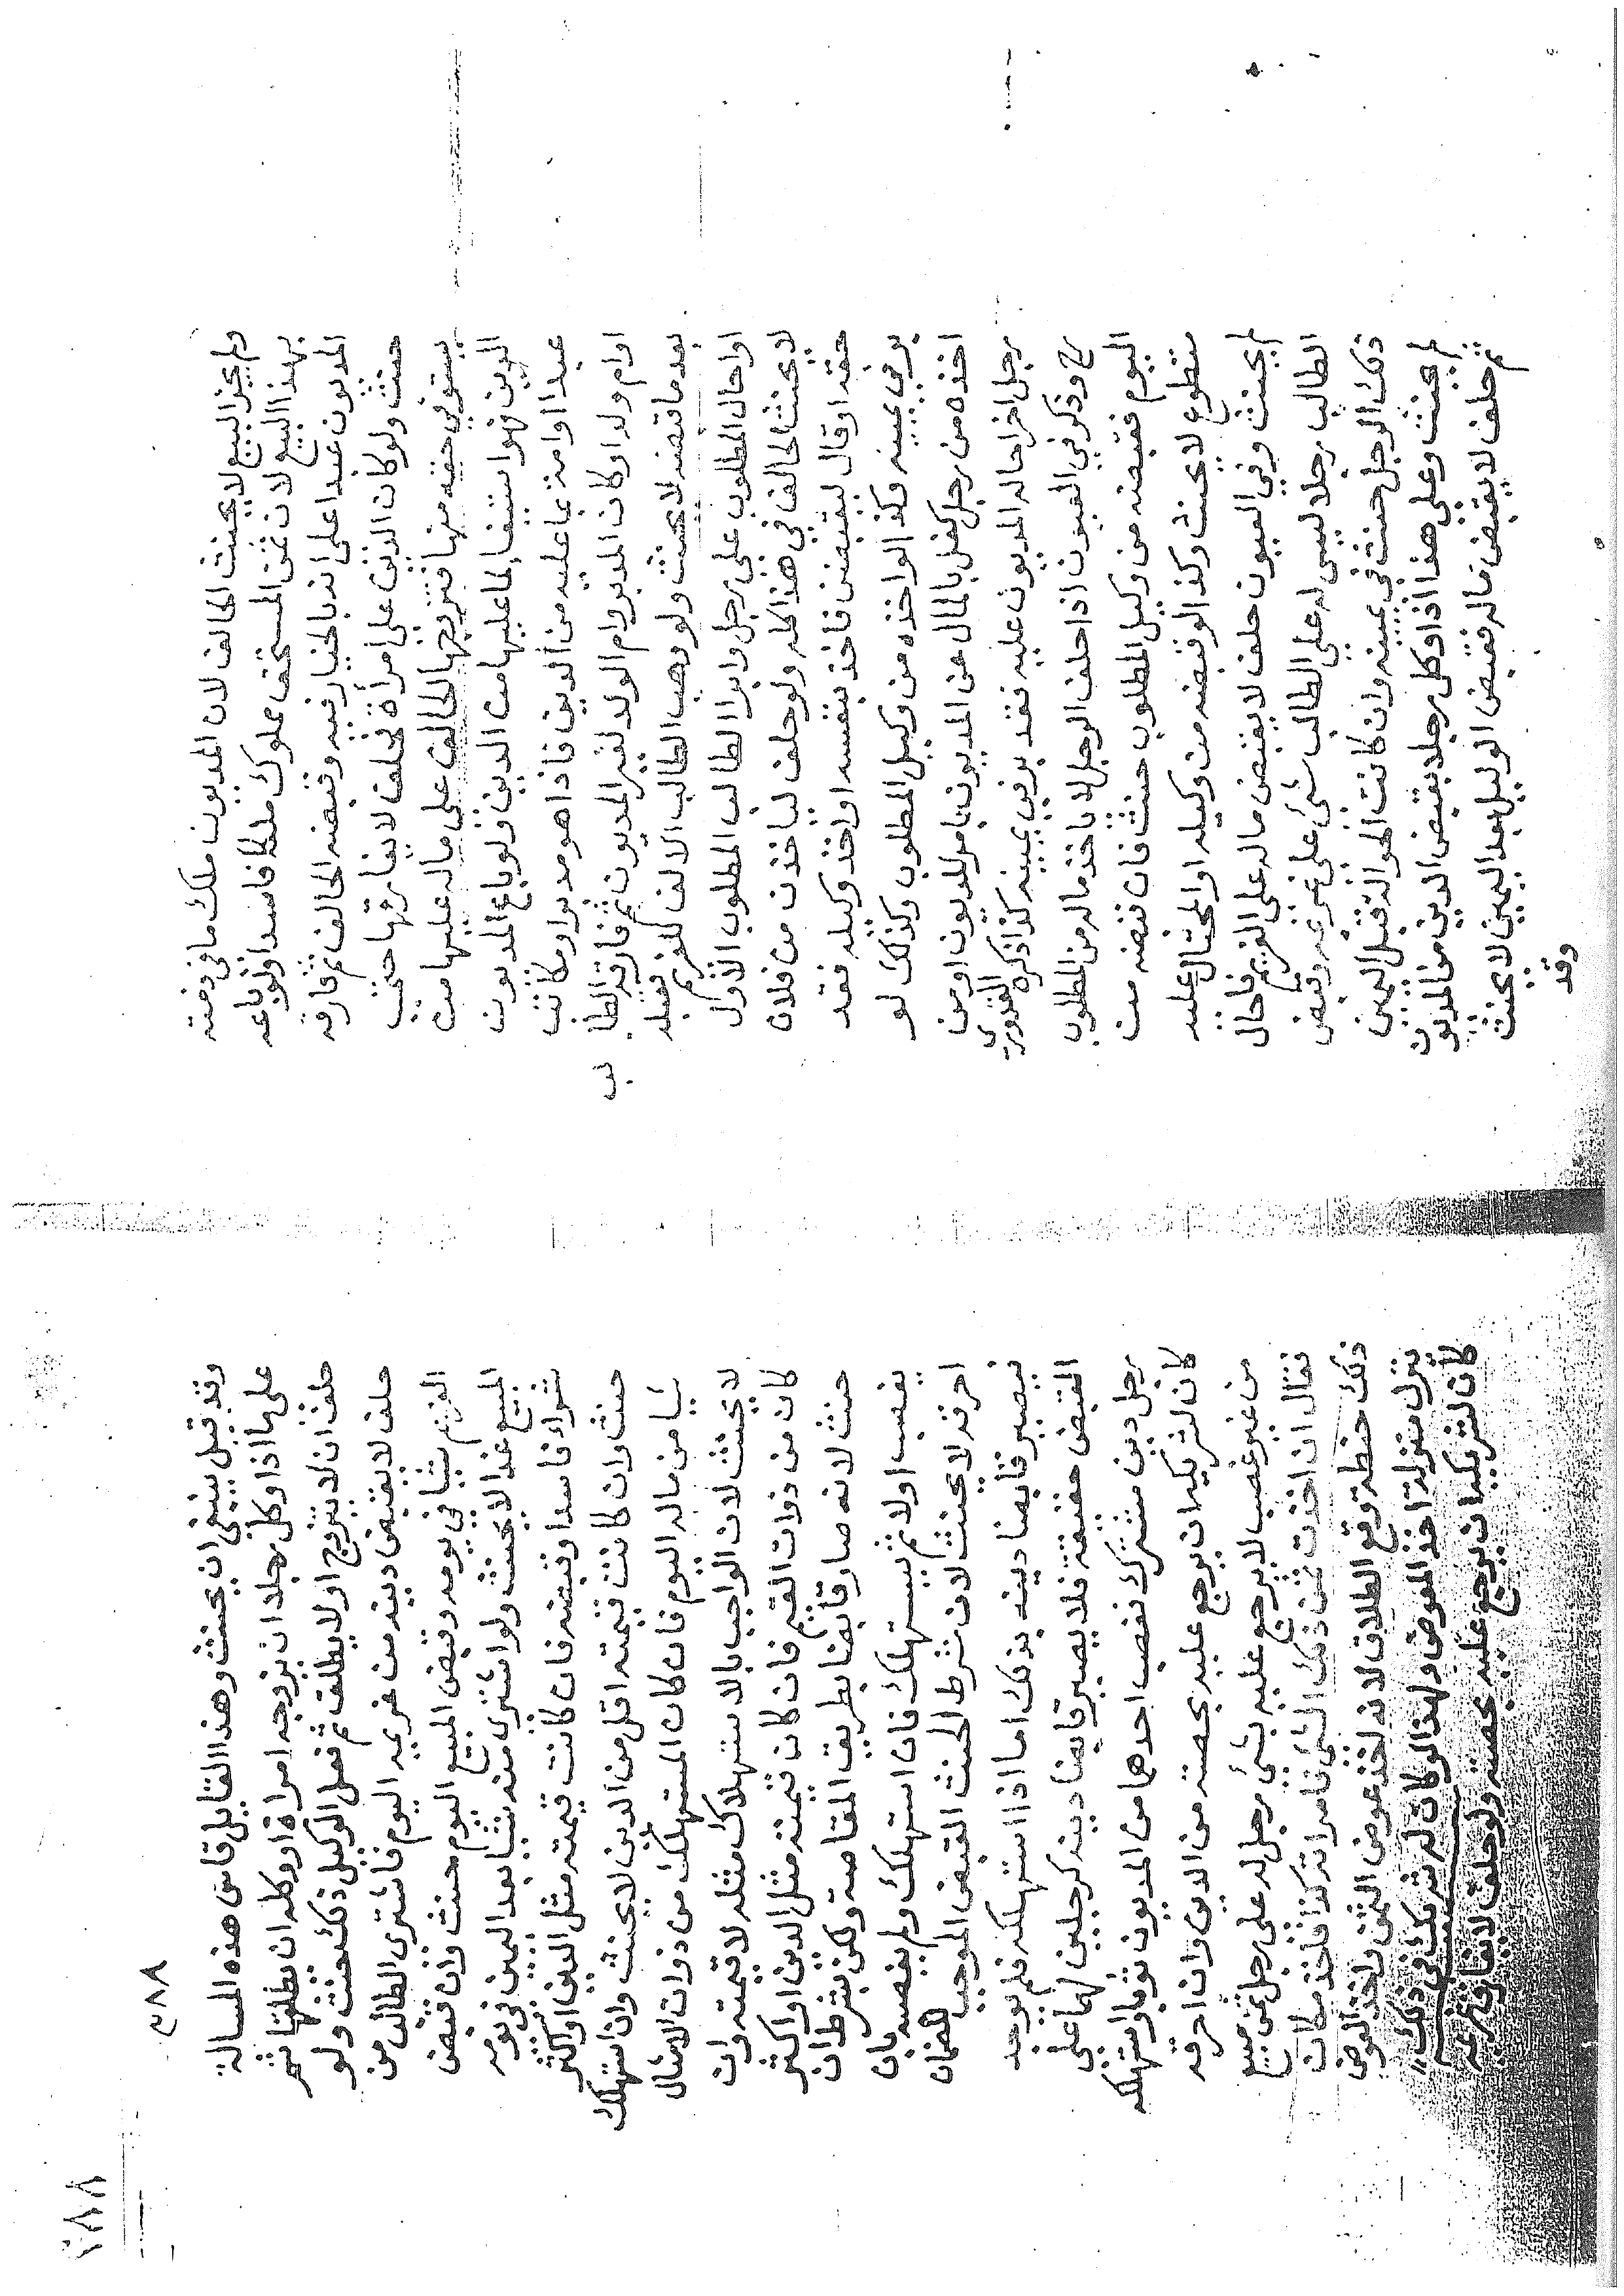 ولم يجز البيع لا يحنث الحالف لان المديون ملك ما في ذمته
بهذا البيع لان ثمن المستحق مملوك ملكا فاسدا ولو باعه
المديون عبدا على انه بالخيار فيه وقبضه الحالف ثم فارقه
حنث ولو كان الدين على امرأة فحلف لا يفارقها حتى
يستوفي حقه منها فتزوجها الحالف على ماله عليها من
الدين فهو استيفاء لما عليها من الدين ولو باع المديون
عبدا او امة بما عليه من الدين فاذا هو مدبر او مكاتب
او ام ولد او كان المدبر وام الولد لغير المديون ثم فارقه الطالب
بعد ما قبضه لا يحنث ولو وهب الطالب الالف للغريم فقبله
او احال المطلوب على رجل وابرا الطالب المطلوب الاول
لا يحنث الحالف في هذا كله ولو حلف لياخذن من فلان
حقه او قال ليقبضن فاخذ بنفسه او اخذ وكيله فقد
بر في يمينه وكذا لو اخذه من وكيل المطلوب وكذلك لو
اخذه من رجل كفل بالمال عن المديون بامر المديون او من
رجل اخر احاله المديون عليه فقد بر في يمينه كذا ذكره القدوري
رح وذكر في العيون اذا حلف الرجل لا ياخذ ماله من المطلوب
اليوم فقبضه من وكيل المطلوب حنث فان قبضه من
متطوع لا يحنث وكذا لو قبضه من وكيله او المحتال عليه
لم يحنث وفي العيون حلف لا يقبض ماله على الغريم فاحال
الطالب رجلا ليس له على الطالب شئ على غريمه وقبض
ذلك الرجل حنث في يمينه وان كانت الحوالة قبل اليمين
لم يحنث وعلى هذا اذا وكل رجلا بقبض الدين من المديون
ثم حلف لا يقبض ماله فقبض الوكيل بعد اليمين لا يحنث
وقد
٢٨٨
٢٨٨
وقد قيل ينبغي ان يحنث وهذا القايل قاس هذه المسالة
على ما اذا وكل رجلا ان يزوجه امراة او وكله ان يطلقها ثم
حلف ان لا يتزوج او لا يطلق ثم فعل الوكيل ذلك حنث ولو
حلف لا يقبض دينه من غريمه اليوم فاشترى الطالب من
الغريم شيا في يومه وقبض المبيع اليوم حنث وان قبض
المبيع غدا لا يحنث ولو اشترى منه شيا بعد اليمين في يومه
شراء فاسدا وقبضه فان كانت قيمته مثل الدين او اكثر
حنث وان كانت قيمته اقل من الدين لا يحنث وان استهلك
شيا من ماله اليوم فان كان المستهلك من ذوات الامثال
لا يحنث لان الواجب بالاستهلاك مثله لا قيمته وان
كان من ذوات القيم فان كان قيمته مثل الدين او اكثر
حنث لانه صار قابضا بطريق المقاصة ولكن بشرط ان
يغصب اولا ثم يستهلك فان استهلك ولم يغصبه بان
احرقه لا يحنث لان شرط الحنث القبض الموجب للضمان
فيصير قابضا دينه بذلك اما اذا استهلكه فلم يوجد
القبض حقيقة فلا يصير قابضا دينه كرجلين لهما على
رجل دين مشترك فغصب احدهما من المديون ثوبا واستهلكه
كان لشريكه ان يرجع عليه بحصته من الدين وان احرقه
من غير غصب لا يرجع عليه بشئ رجل له على رجل ثمن مبيع
فقال ان اخذت ثمن ذلك الشئ فامراته كذا فاخذ مكان
ذلك حنطة وقع الطلاق لانه اخذ عوض الثمن واخذ العوض
ينزل منزلة اخذ المعوض ولهذا لو كان له شريك في ذلك
كان لشريكه ان يرجع عليه بحصته ولو حلف لا يفارق غريمه